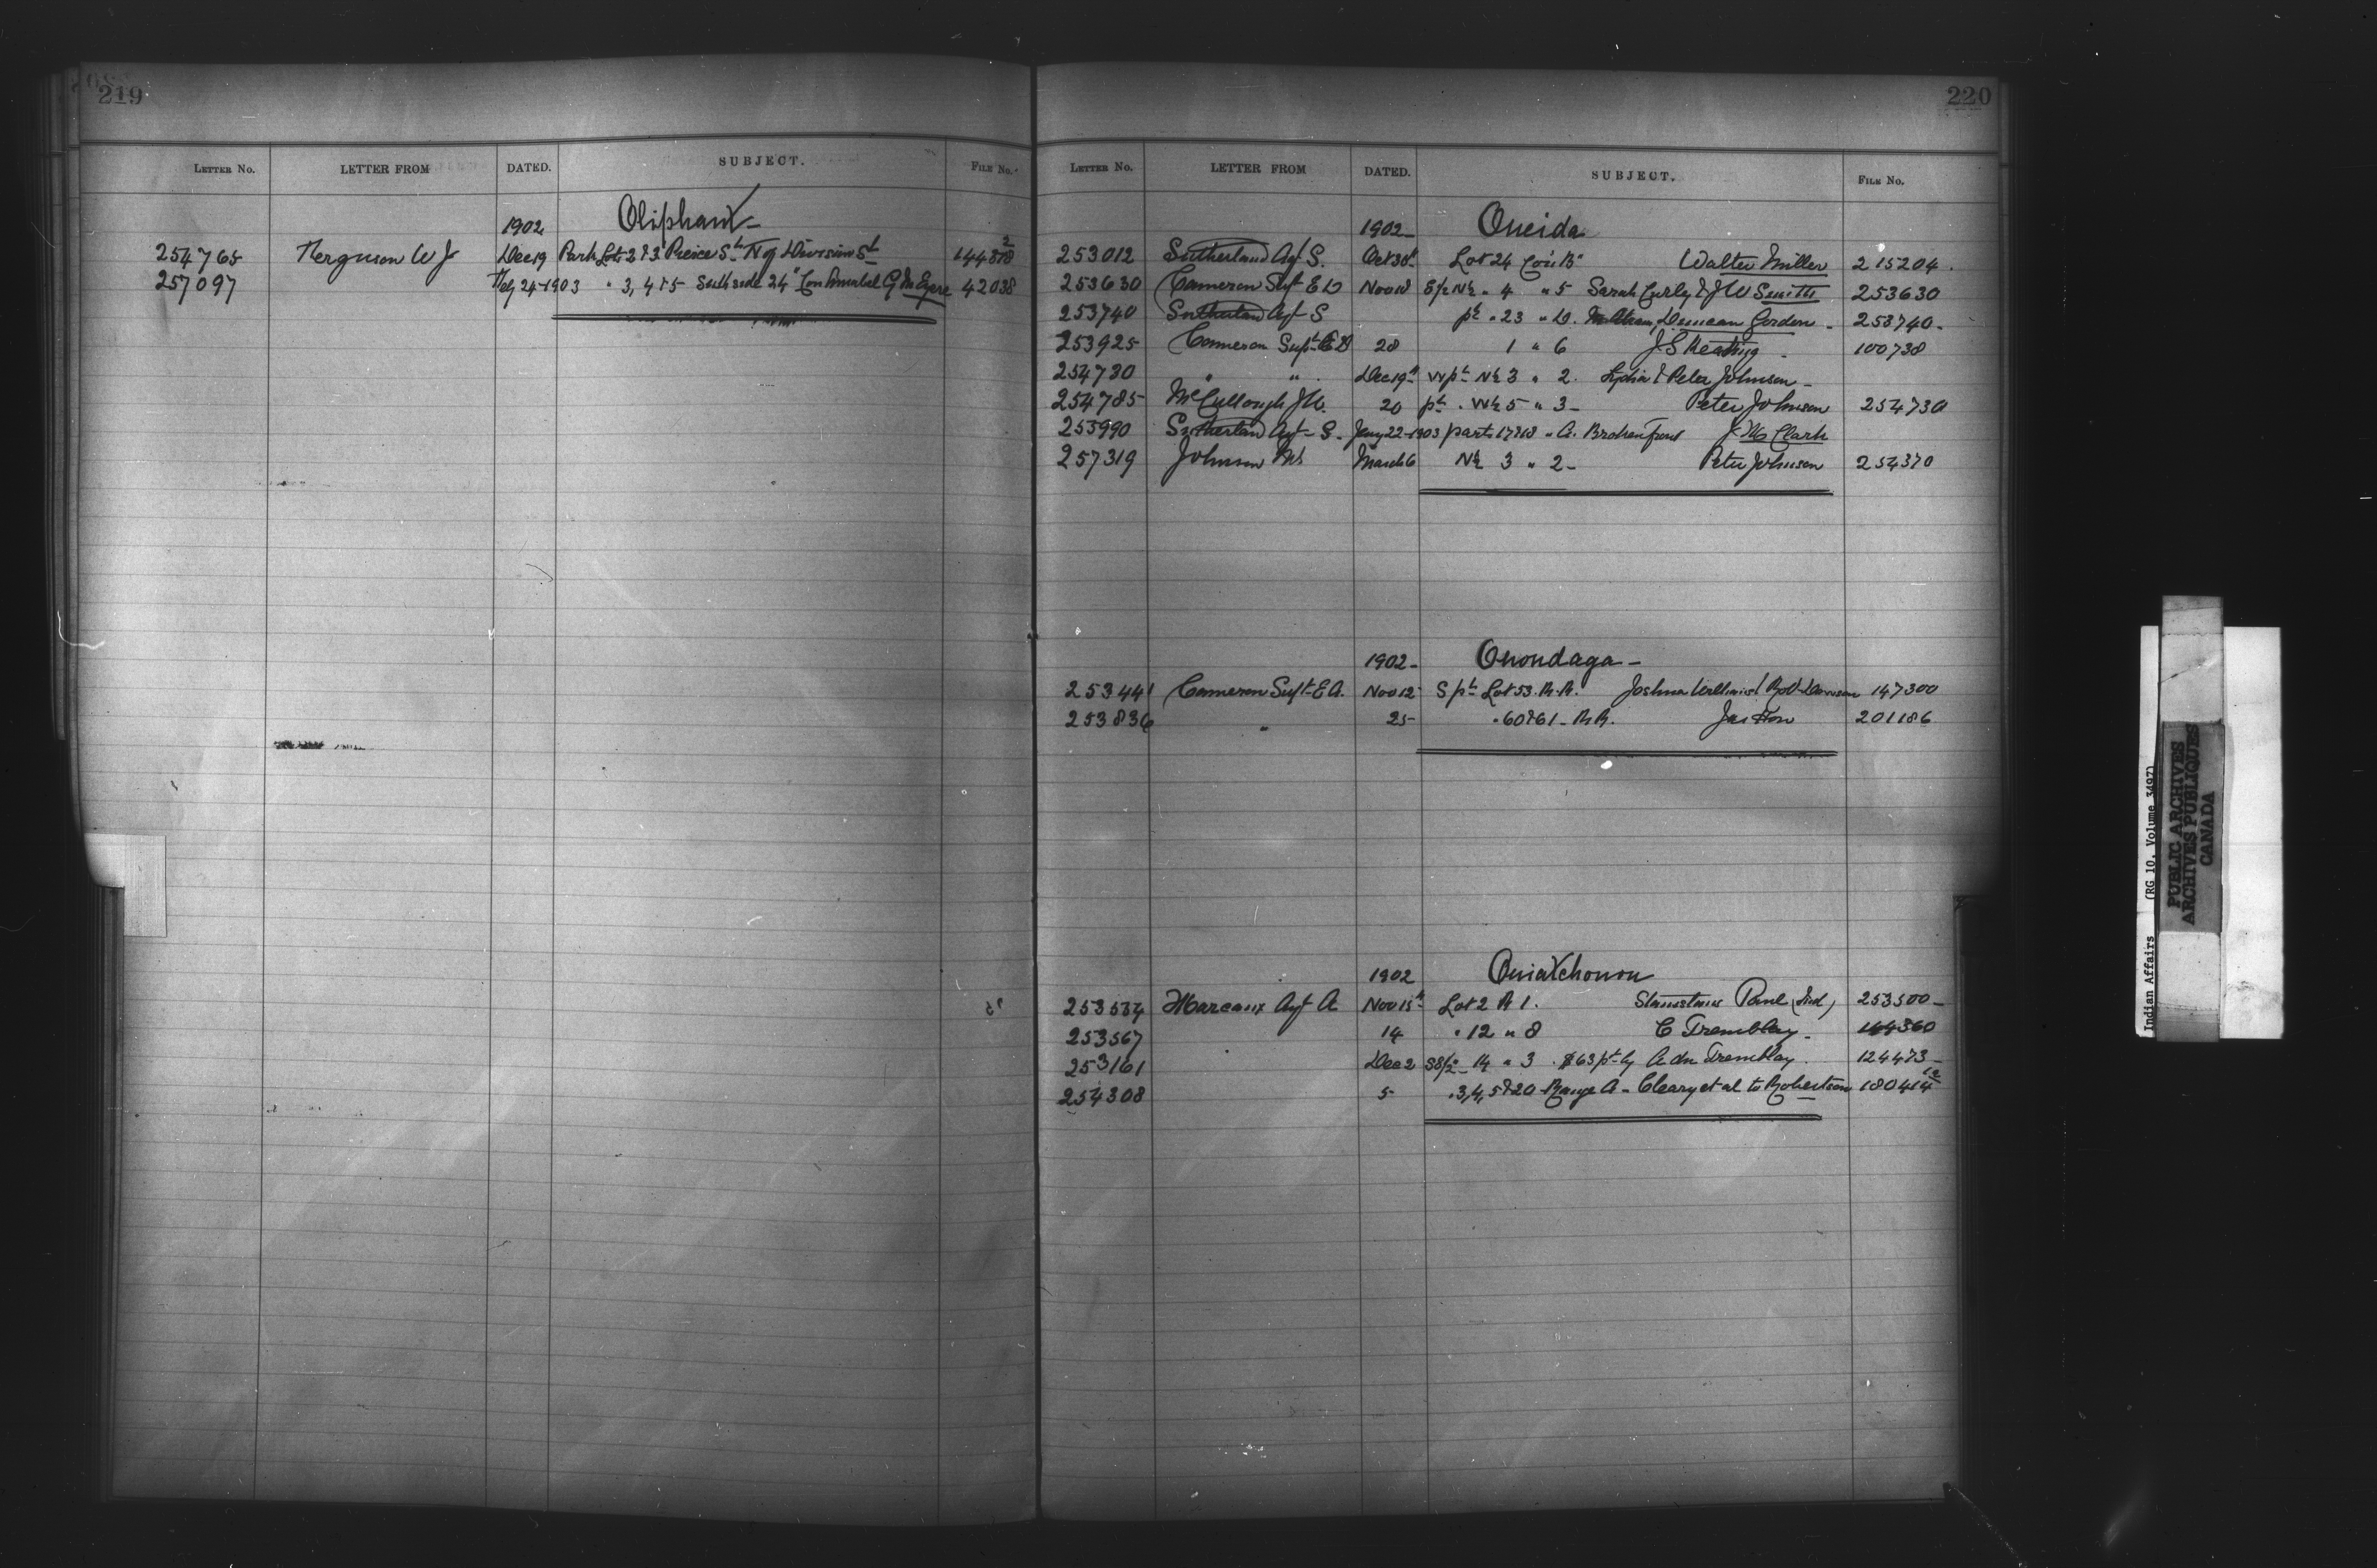 219
LETTER No. LETTER FROM DATED. SUBJECT. FILE No.
1902 Oliphant -
254765 Ferguson W J Dec 19 Park Lots 2 & 3 Peirce St N of Division St 144818 2
257097 Feby 24-1903 " 3, 4 & 5 South side 24" Con Amabel 42038
220
LETTER No. LETTER FROM DATED. SUBJECT. FILE No.
1902 - Oneida
253012 Sutherland Agt S. Oct 30th Lot 24 Con "B" Walter Miller 215204.
253630 Cameron Supt E D Nov 18 E/2 N½ " 4 " 5 Sarah Curly & J W Smith 253630
253740 Sutherland Agt S pt " 23 " D. Duncan Gordon - 253740 -
253925 Cameron Supt E D 28 1 " 6 J S Keating - 100738
254730 " " Dec 19th W pt N½ 3 " 2. Lydia & Peter Johnson -
254785 McCullough J W. 20 pt . W½ 5 " 3 - Peter Johnson 254730
255990 Sutherland Agt - S. Jany 22-1903 parts 17 & 18 " A. Broken Front J Clark
257319 Johnson Mrs March 6 N½ 3 " 2 - Peter Johnson 254370
1902 - Onondaga -
253441 Cameron Supt E D. Nov 12 S pt Lot 53. R.R. Joshua 147300
253836 " 25 " 60 & 61 - R R. Jas 201186
1902 Ouiatchouon
253534 Marcoux Agt A Nov 15th Lot 2 R 1. Stanislaus (Ind) 253500 -
253567 14 " 12 " 8 C Tremblay - 144360
253161 Dec 2 14 " 3 Tremblay. 124473 -
254308 5 " 3, 4, 5 & 20 - Range A - Cleary et al to Robertson 180414 12
Indian Affairs (RG 10, Volume 3497)
PUBLIC ARCHIVES
ARCHIVES PUBLIQUES
CANADA